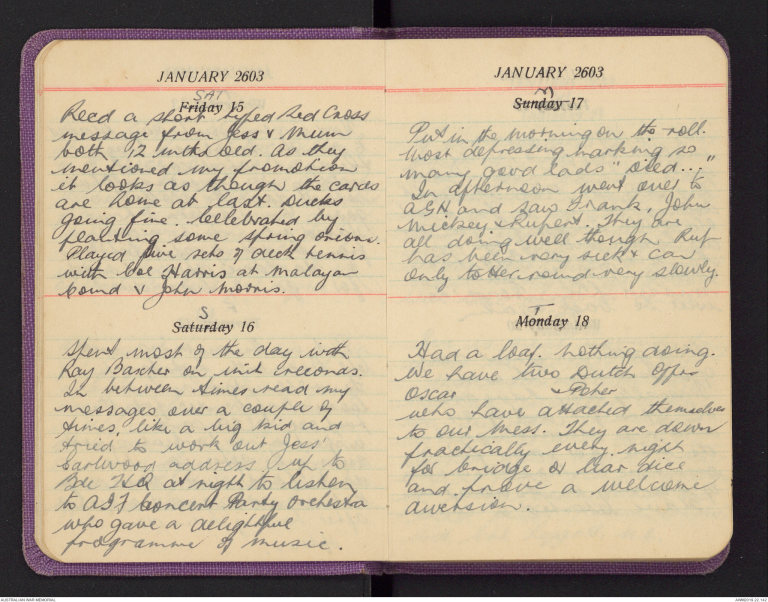 JANUARY 2603
SAT
Friday 15
Recd a short typed Red Cross
message from Jess & Mum
both 12 mths old. As they
mentioned my promotion
it looks as though the cards
are home at last. Ducks
going fine. Celebrated by
planting some spring onions.
Played five sets of deck tennis
with Col Harris at Malayan
Comd & John Morris.
S
Saturday 16
Spent most of the day with
Ray Barcher on unit records.
In between times read my
messages over a couple of
times, like a big kid and
tried to work out Jess'
Earlwood address. Up to
Bde HQ at night to listen
to AIF Concert Party Orchestra
who gave a delightful
programme of music.
JANUARY 2603
M
Sunday 17
Put in the morning on the roll.
Most depressing marking so
many good lads "died..."
In afternoon went over to
AGH and saw Frank, John
Mickey & Rupert. They are
all doing well though Rup
has been very sick & can
only totter round very slowly.
T
Monday 18
Had a loaf. Nothing doing.
We have two Dutch Offrs
Oscar & Peher
who have attached themselves
to our mess. They are down
practically every night
for bridge or liar dice
and prove a welcome
diversion.
AUSTRALIAN WAR MEMORIAL